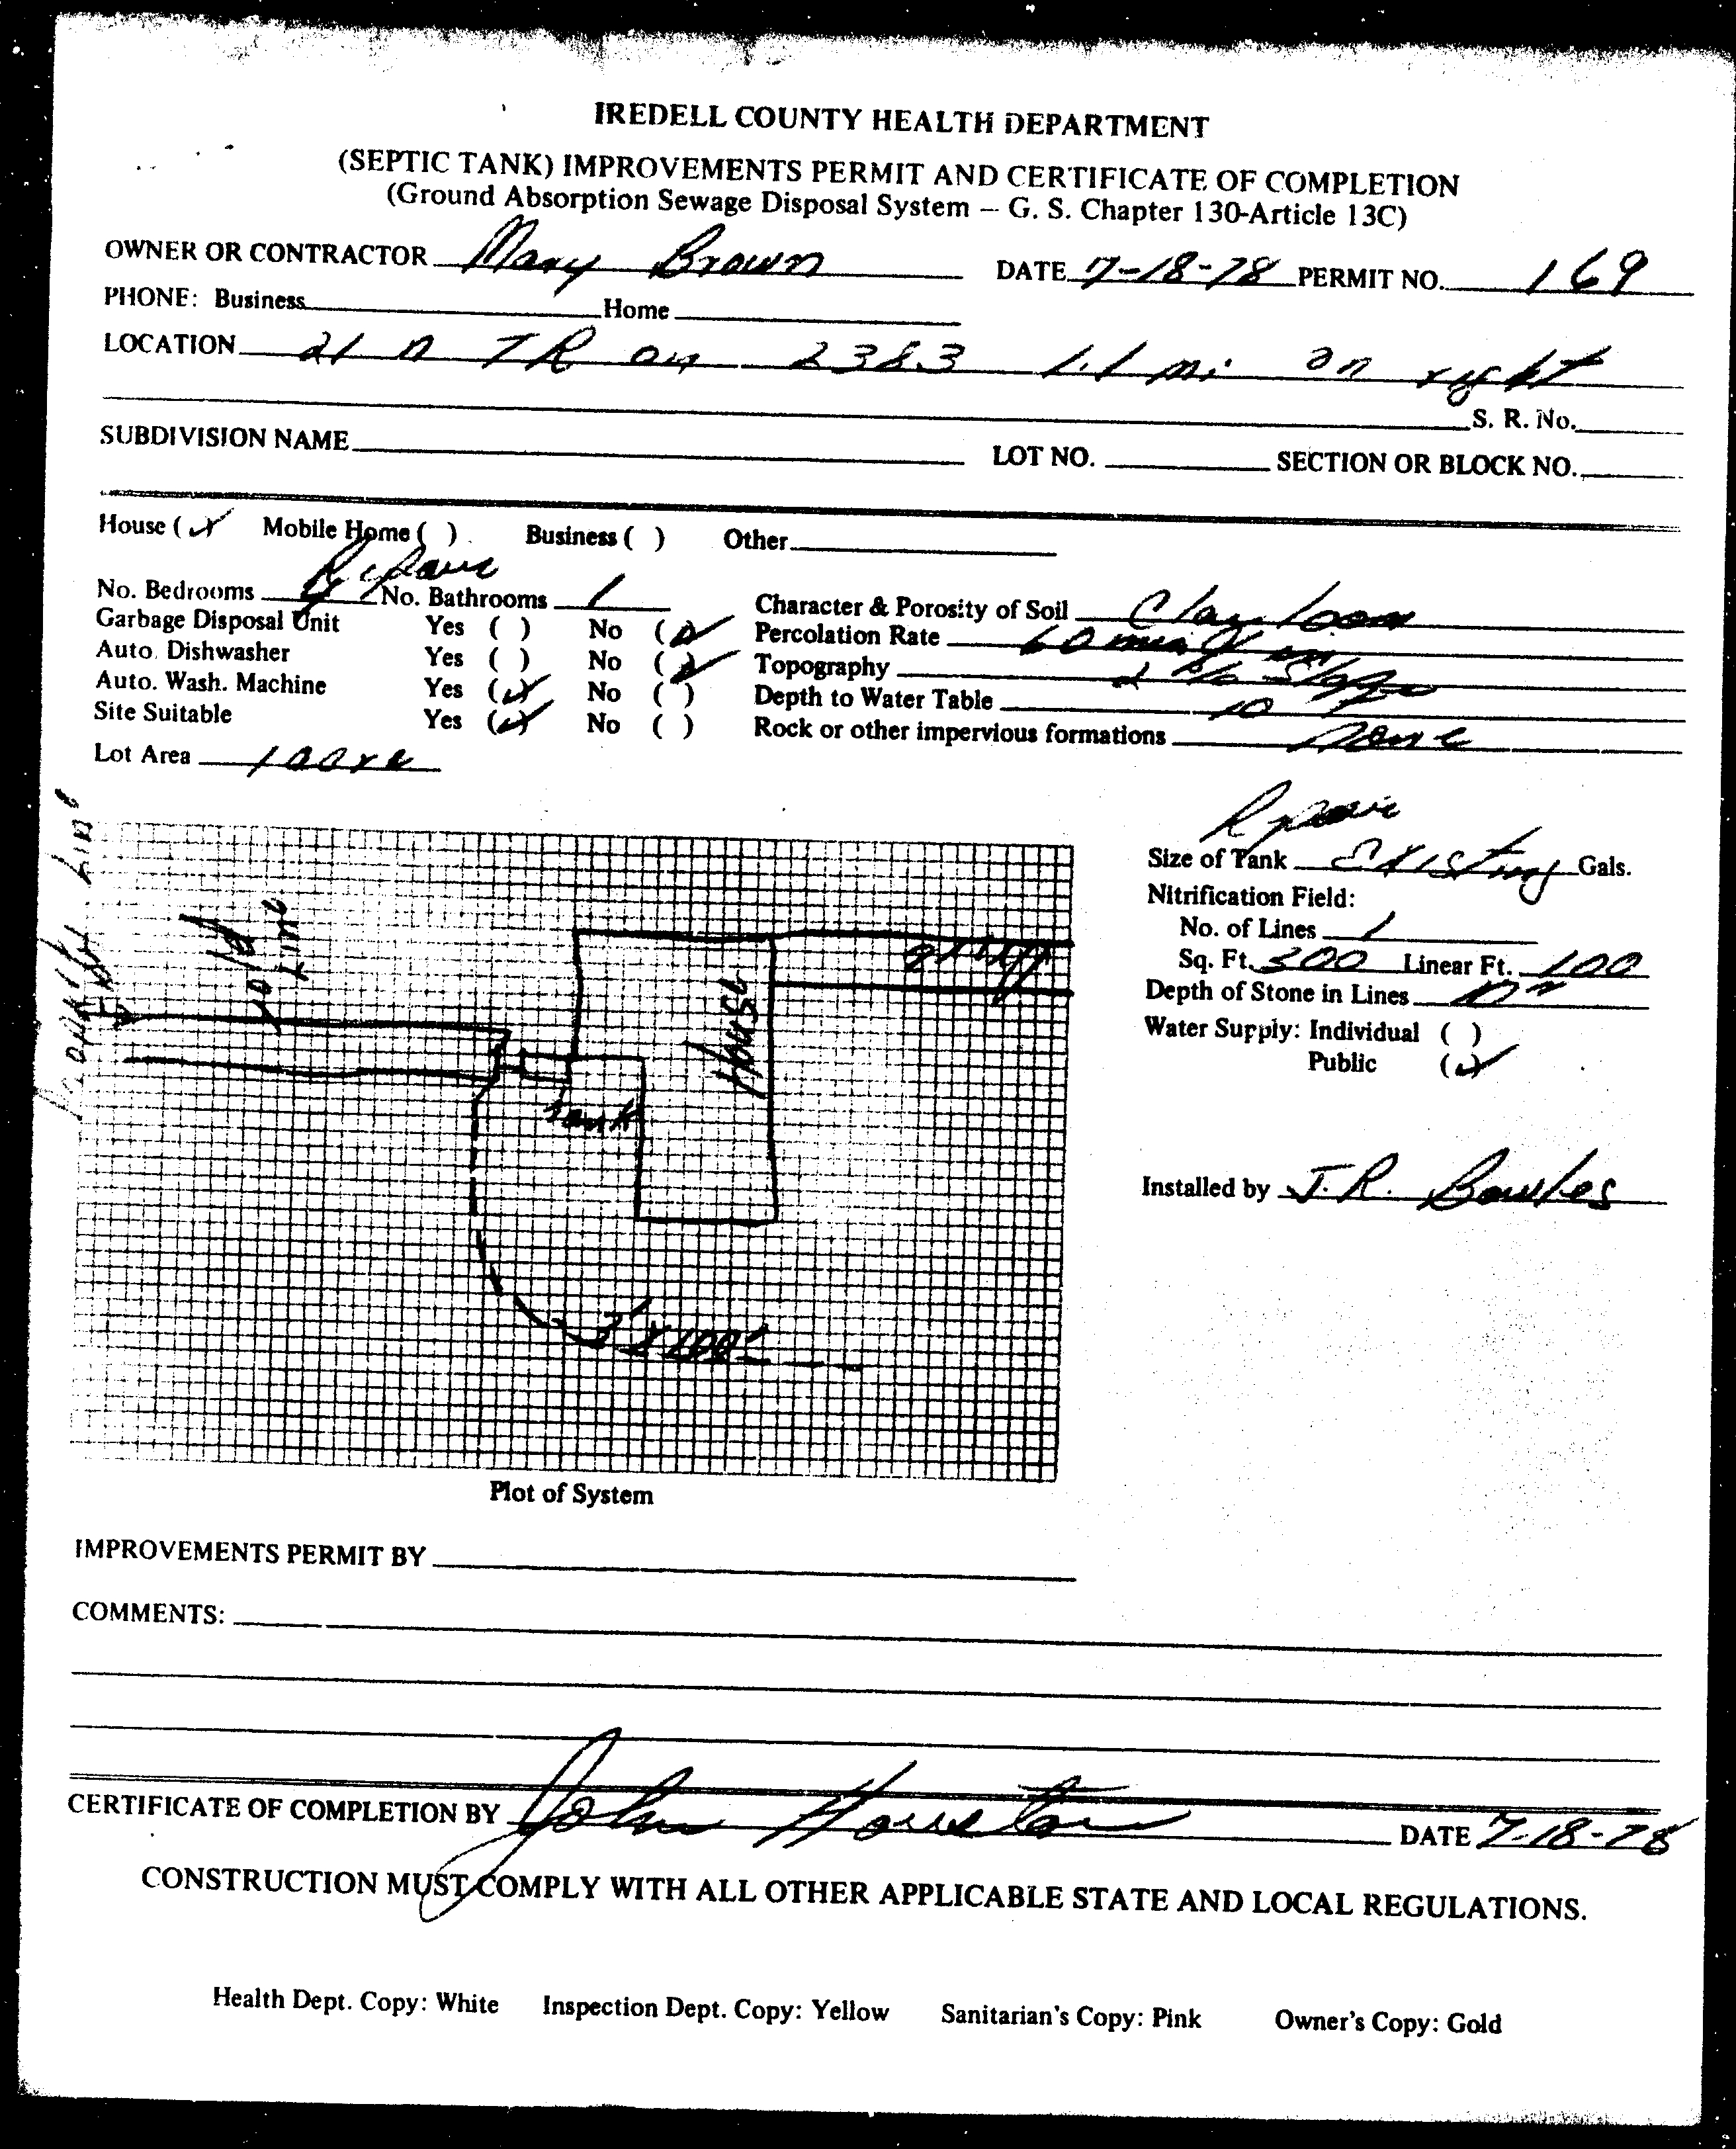 IREDELL COUNTY HEALTH DEPARTMENT
(SEPTIC TANK) IMPROVEMENTS PERMIT AND CERTIFICATE OF COMPLETION
(Ground Absorption Sewage Disposal System – G. S. Chapter 130-Article 13C)
OWNER OR CONTRACTOR Mary Brown DATE 7-18-78 PERMIT NO. 169
PHONE: Business Home
LOCATION 21 n TR on 2383 1.1 mi on right
S. R. No.
SUBDIVISION NAME LOT NO. SECTION OR BLOCK NO.
House (✓) Mobile Home ( ) Business ( ) Other
Repair
No. Bedrooms 4 No. Bathrooms 1 Character & Porosity of Soil Clay loam
Garbage Disposal Unit Yes ( ) No (✓) Percolation Rate 60 min
Auto. Dishwasher Yes ( ) No (✓) Topography 2 % Slope
Auto. Wash. Machine Yes (✓) No ( ) Depth to Water Table 10
Site Suitable Yes (✓) No ( ) Rock or other impervious formations None
Lot Area 1 acre
Repair
Size of Tank Existing Gals.
Nitrification Field:
No. of Lines 1
Sq. Ft. 300 Linear Ft. 100
Depth of Stone in Lines
Water Supply: Individual ( )
Public (✓)
Installed by J.R. Bowles
Property Line
old Line
House
Tank
3' x 100'
Plot of System
IMPROVEMENTS PERMIT BY
COMMENTS:
CERTIFICATE OF COMPLETION BY John Houston DATE 7-18-78
CONSTRUCTION MUST COMPLY WITH ALL OTHER APPLICABLE STATE AND LOCAL REGULATIONS.
Health Dept. Copy: White Inspection Dept. Copy: Yellow Sanitarian's Copy: Pink Owner's Copy: Gold